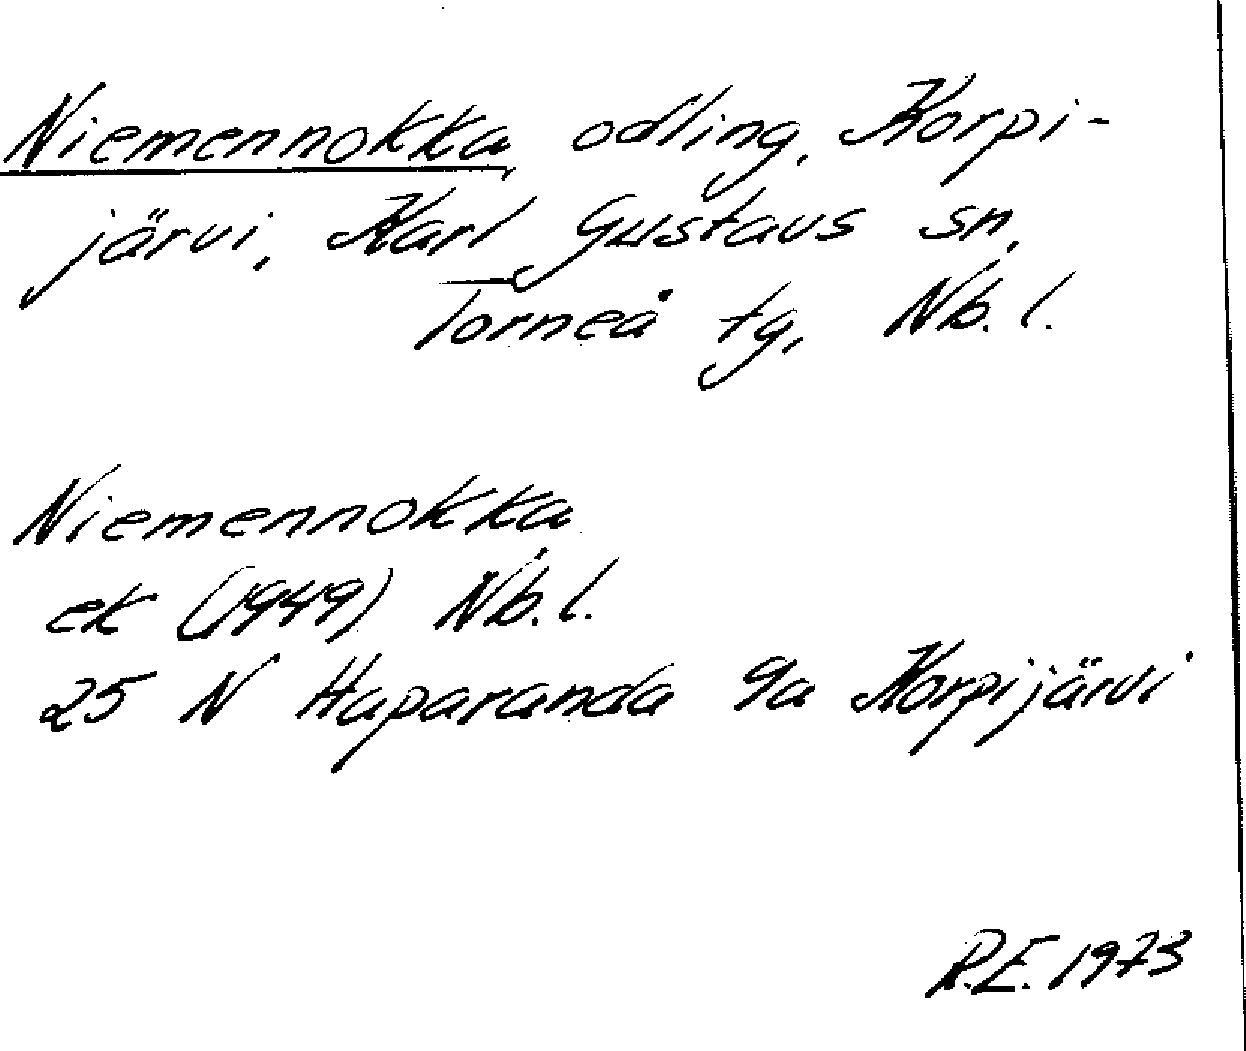 Niemennokka, odling, Korpi-
järvi, Karl Gustavs sn,
Torneå tg, Nb. l.
Niemennokka
ek (1949) Nb. l.
25 N Haparanda 9a Korpijärvi
R.E. 1973